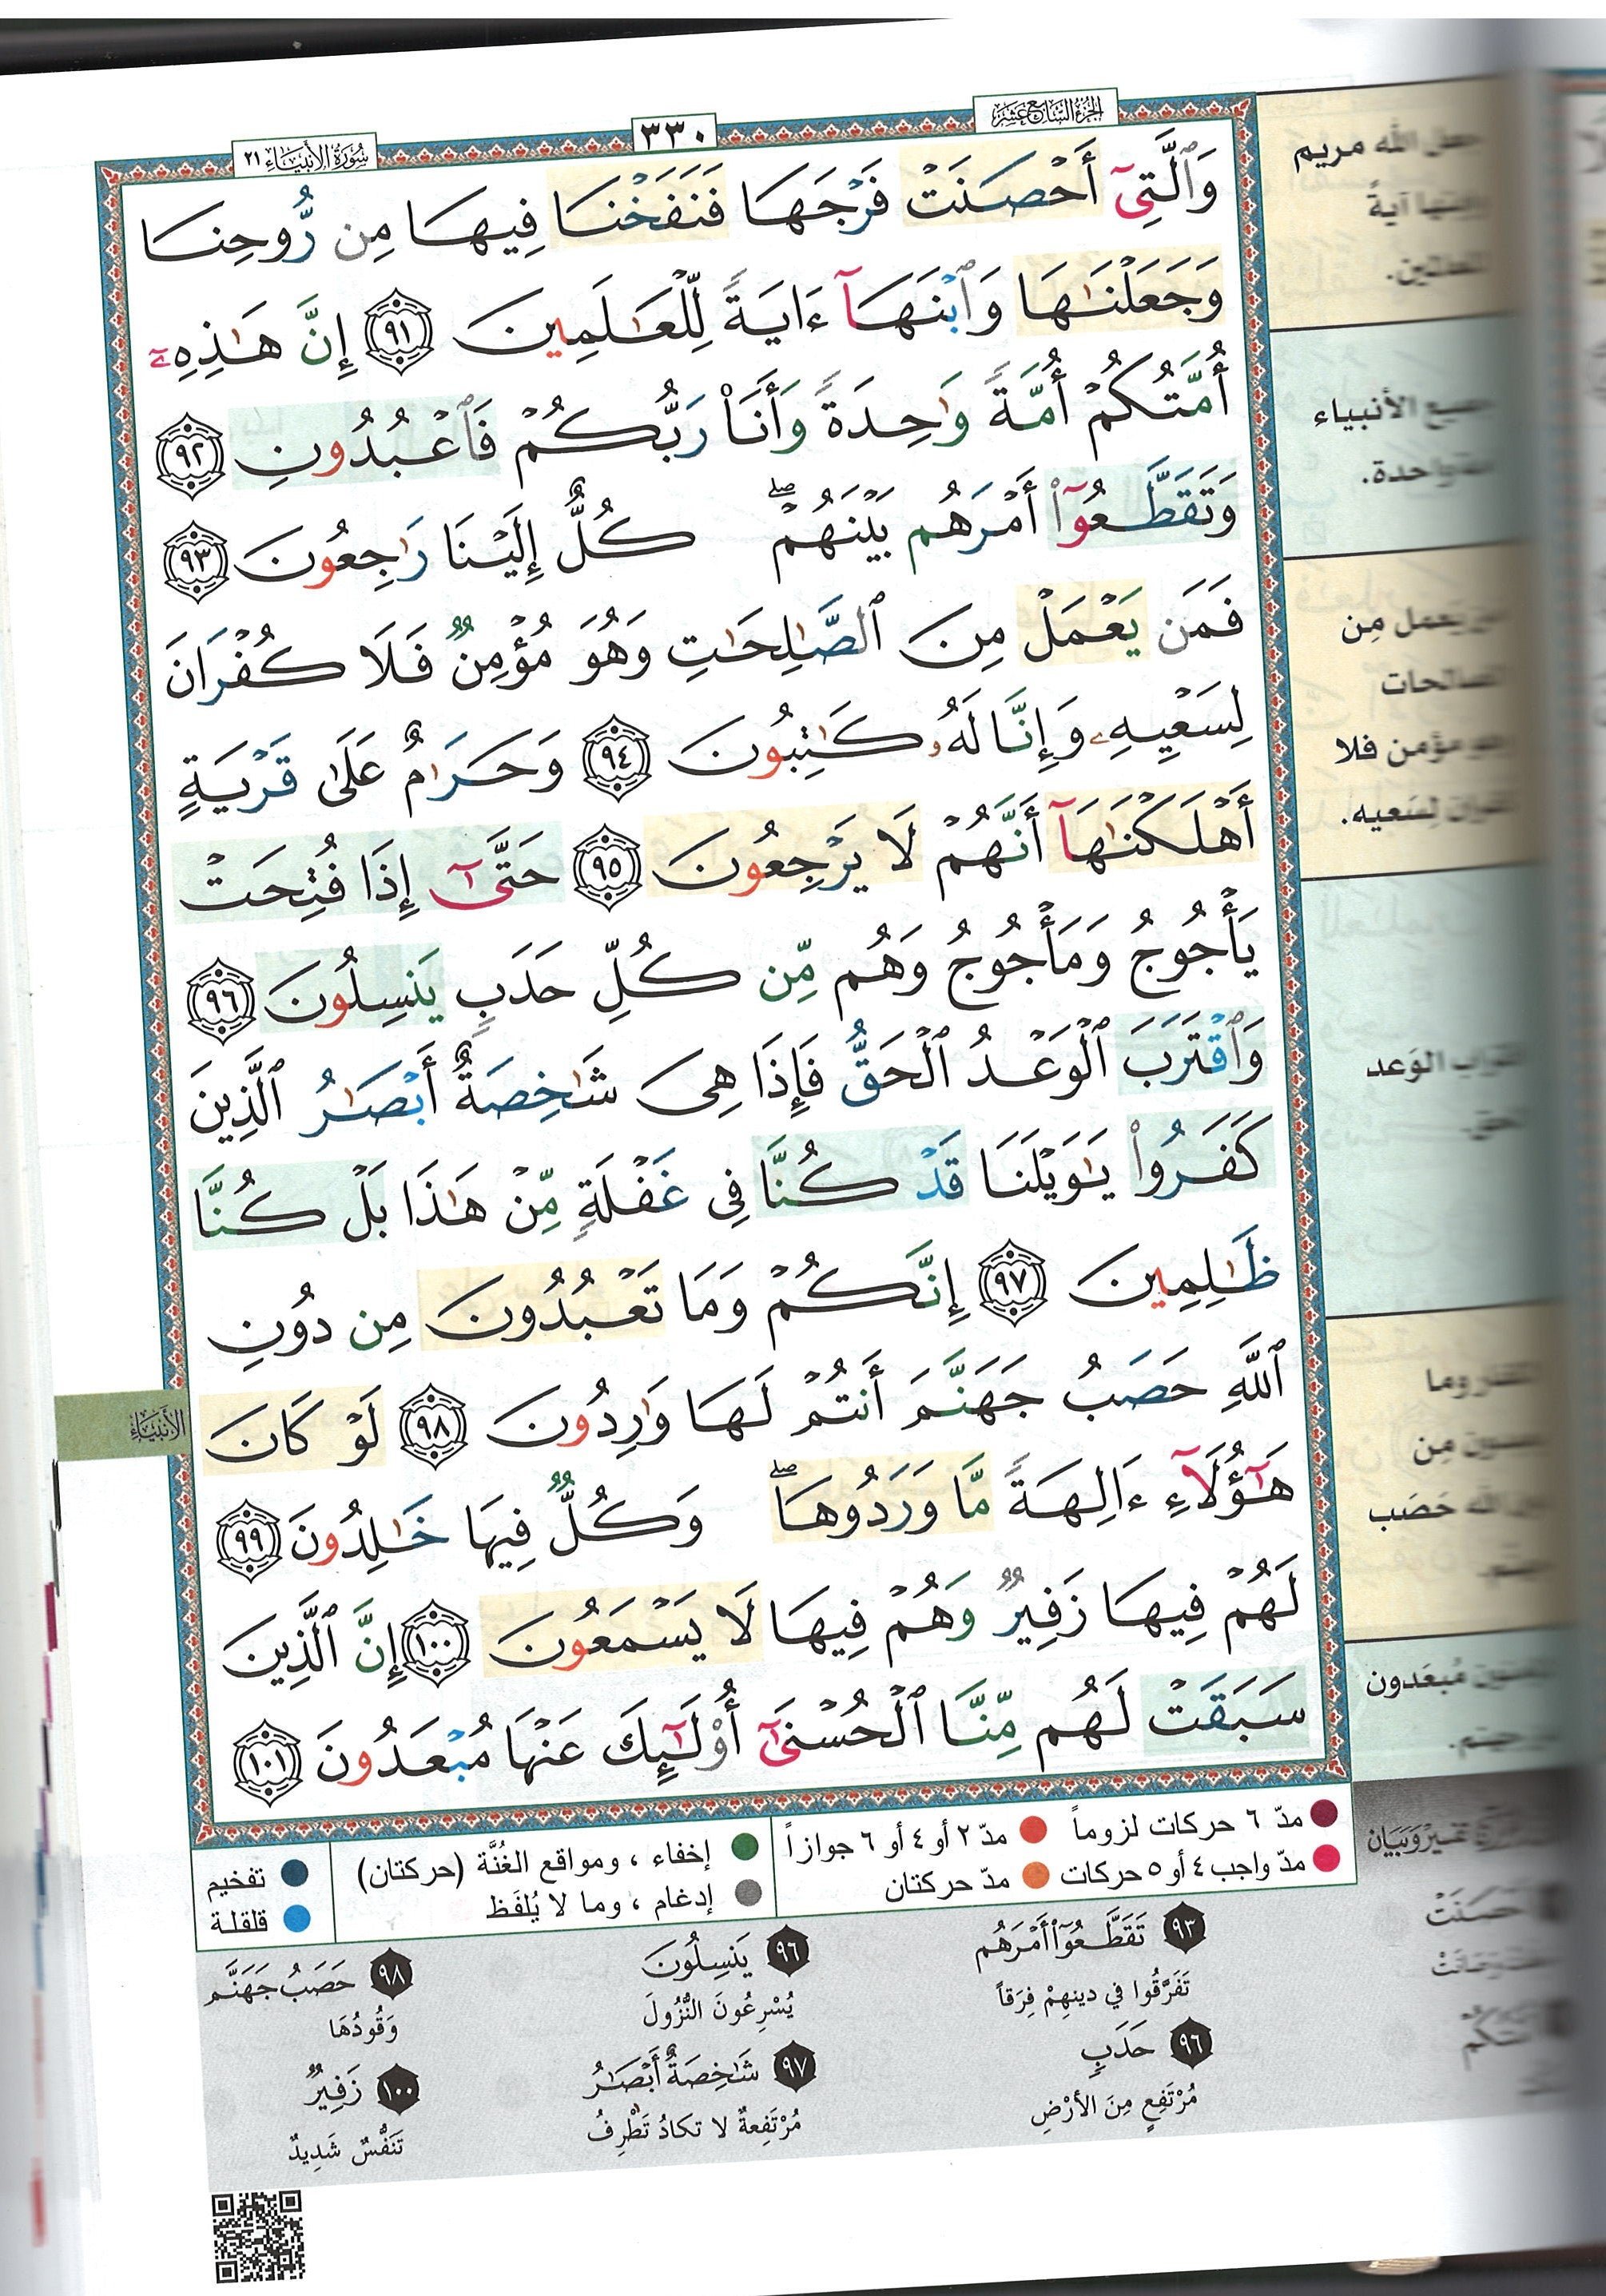 الجزء السابع عشر
٣٣٠
سورة الأنبياء ٢١
وَٱلَّتِىٓ أَحْصَنَتْ فَرْجَهَا فَنَفَخْنَا فِيهَا مِن رُّوحِنَا
وَجَعَلْنَٰهَا وَٱبْنَهَآ ءَايَةً لِّلْعَٰلَمِينَ ٩١ إِنَّ هَٰذِهِۦٓ
أُمَّتُكُمْ أُمَّةً وَٰحِدَةً وَأَنَا۠ رَبُّكُمْ فَٱعْبُدُونِ ٩٢
وَتَقَطَّعُوٓا۟ أَمْرَهُم بَيْنَهُمْ ۖ كُلٌّ إِلَيْنَا رَٰجِعُونَ ٩٣
فَمَن يَعْمَلْ مِنَ ٱلصَّٰلِحَٰتِ وَهُوَ مُؤْمِنٌ فَلَا كُفْرَانَ
لِسَعْيِهِۦ وَإِنَّا لَهُۥ كَٰتِبُونَ ٩٤ وَحَرَٰمٌ عَلَىٰ قَرْيَةٍ
أَهْلَكْنَٰهَآ أَنَّهُمْ لَا يَرْجِعُونَ ٩٥ حَتَّىٰٓ إِذَا فُتِحَتْ
يَأْجُوجُ وَمَأْجُوجُ وَهُم مِّن كُلِّ حَدَبٍ يَنسِلُونَ ٩٦
وَٱقْتَرَبَ ٱلْوَعْدُ ٱلْحَقُّ فَإِذَا هِىَ شَٰخِصَةٌ أَبْصَٰرُ ٱلَّذِينَ
كَفَرُوا۟ يَٰوَيْلَنَا قَدْ كُنَّا فِى غَفْلَةٍ مِّنْ هَٰذَا بَلْ كُنَّا
ظَٰلِمِينَ ٩٧ إِنَّكُمْ وَمَا تَعْبُدُونَ مِن دُونِ
ٱللَّهِ حَصَبُ جَهَنَّمَ أَنتُمْ لَهَا وَٰرِدُونَ ٩٨ لَوْ كَانَ
هَٰٓؤُلَآءِ ءَالِهَةً مَّا وَرَدُوهَا ۖ وَكُلٌّ فِيهَا خَٰلِدُونَ ٩٩
لَهُمْ فِيهَا زَفِيرٌ وَهُمْ فِيهَا لَا يَسْمَعُونَ ١٠٠ إِنَّ ٱلَّذِينَ
سَبَقَتْ لَهُم مِّنَّا ٱلْحُسْنَىٰٓ أُو۟لَٰٓئِكَ عَنْهَا مُبْعَدُونَ ١٠١
الله مريم
آيةً
الأنبياء
واحدة.
يعمل مِن
الصالحات
مؤمن فلا
لِسَعيه.
الوَعد
وما
مِن
الله حَصَب
مُبعَدون
الأنبياء
مدّ ٦ حركات لزوماً
مدّ ٢ أو ٤ أو ٦ جوازاً
مدّ واجب ٤ أو ٥ حركات
مدّ حركتان
إخفاء ، ومواقع الغُنَّة (حركتان)
إدغام ، وما لا يُلفَظ
تفخيم
قلقلة
٩٣ تَقَطَّعُوٓا۟ أَمْرَهُم
تَفَرَّقُوا في دينِهِمْ فِرَقاً
٩٦ حَدَبٍ
مُرْتَفِعٍ مِنَ الأَرْضِ
٩٦ يَنسِلُونَ
يُسْرِعُونَ النُّزُولَ
٩٧ شَٰخِصَةٌ أَبْصَٰرُ
مُرْتَفِعةٌ لا تكادُ تَطْرِفُ
٩٨ حَصَبُ جَهَنَّمَ
وَقُودُهَا
١٠٠ زَفِيرٌ
تَنَفُّسٌ شَدِيدٌ